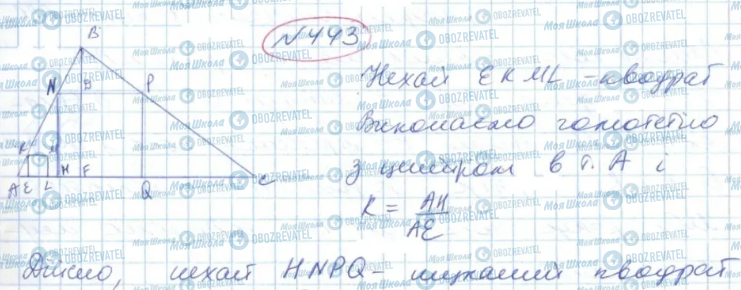 N443
B
N
B
P
K
M
A
E
L
H
F
Q
C
Нехай EKML - квадрат
Виконаємо гомотетію
з центром в т. A і
K = AH/AE
Дійсно, нехай HNPQ - шуканий квадрат
Моя Школа
OBOZREVATEL